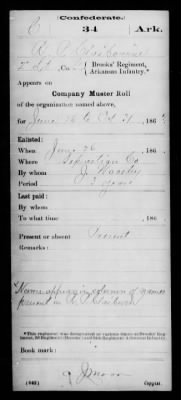 Confederate.
C 34 Ark.
R. P. Claiborne
Lt, Co. Brooks' Regiment,
Arkansas Infantry.*
Appears on
Company Muster Roll
of the organization named above,
for June 16 to Oct 31, 186
Enlisted:
When June 26, 186
Where
By whom J.
Period 3 years
Last paid:
By whom
To what time , 186
Present or absent Present
Remarks:
Name appears in column of names
present as R. P.
*This regiment was designated at various times as Brooks' Regiment,
Arkansas Infantry.
Book mark:
(642) Copyist.